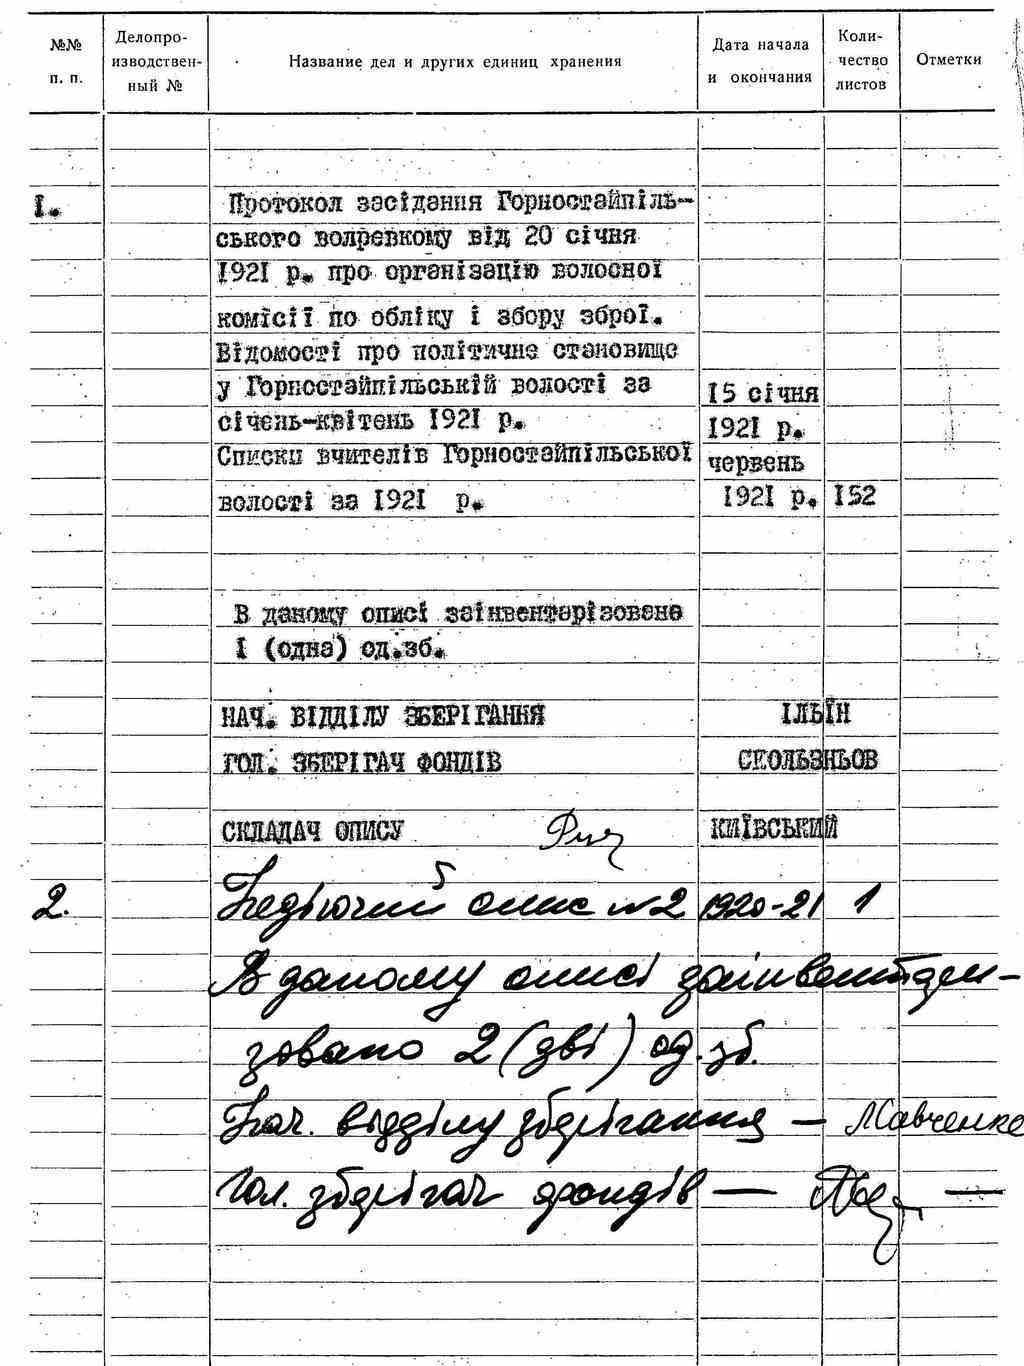 №№ п. п.
Делопро-
изводствен-
ный №
Название дел и других единиц хранения
Дата начала
и окончания
Коли-
чество
листов
Отметки
I.
Протокол засідання Горностайпіль-
ського волревкому від 20 січня
1921 р. про організацію волосної
комісії по обліку і збору зброї.
Відомості про політичне становище
у Горностайпільській волості за
січень-квітень 1921 р.
Списки вчителів Горностайпільської
волості за 1921 р.
15 січня
1921 р.
червень
1921 р.
152
В даному описі заінвентарізовано
I (одна) од.зб.
НАЧ. ВІДДІЛУ ЗБЕРІГАННЯ ІЛЬЇН
ГОЛ. ЗБЕРІГАЧ ФОНДІВ СКОЛЬЗНЬОВ
СКЛАДАЧ ОПИСУ КИЇВСЬКИЙ
2. Недіючий опис №2 1920-21 1
В даному описі заінвентари-
зовано 2 (дві) од. зб.
Нач. відділу зберігання — Мавченко
Гол. зберігач фондів —